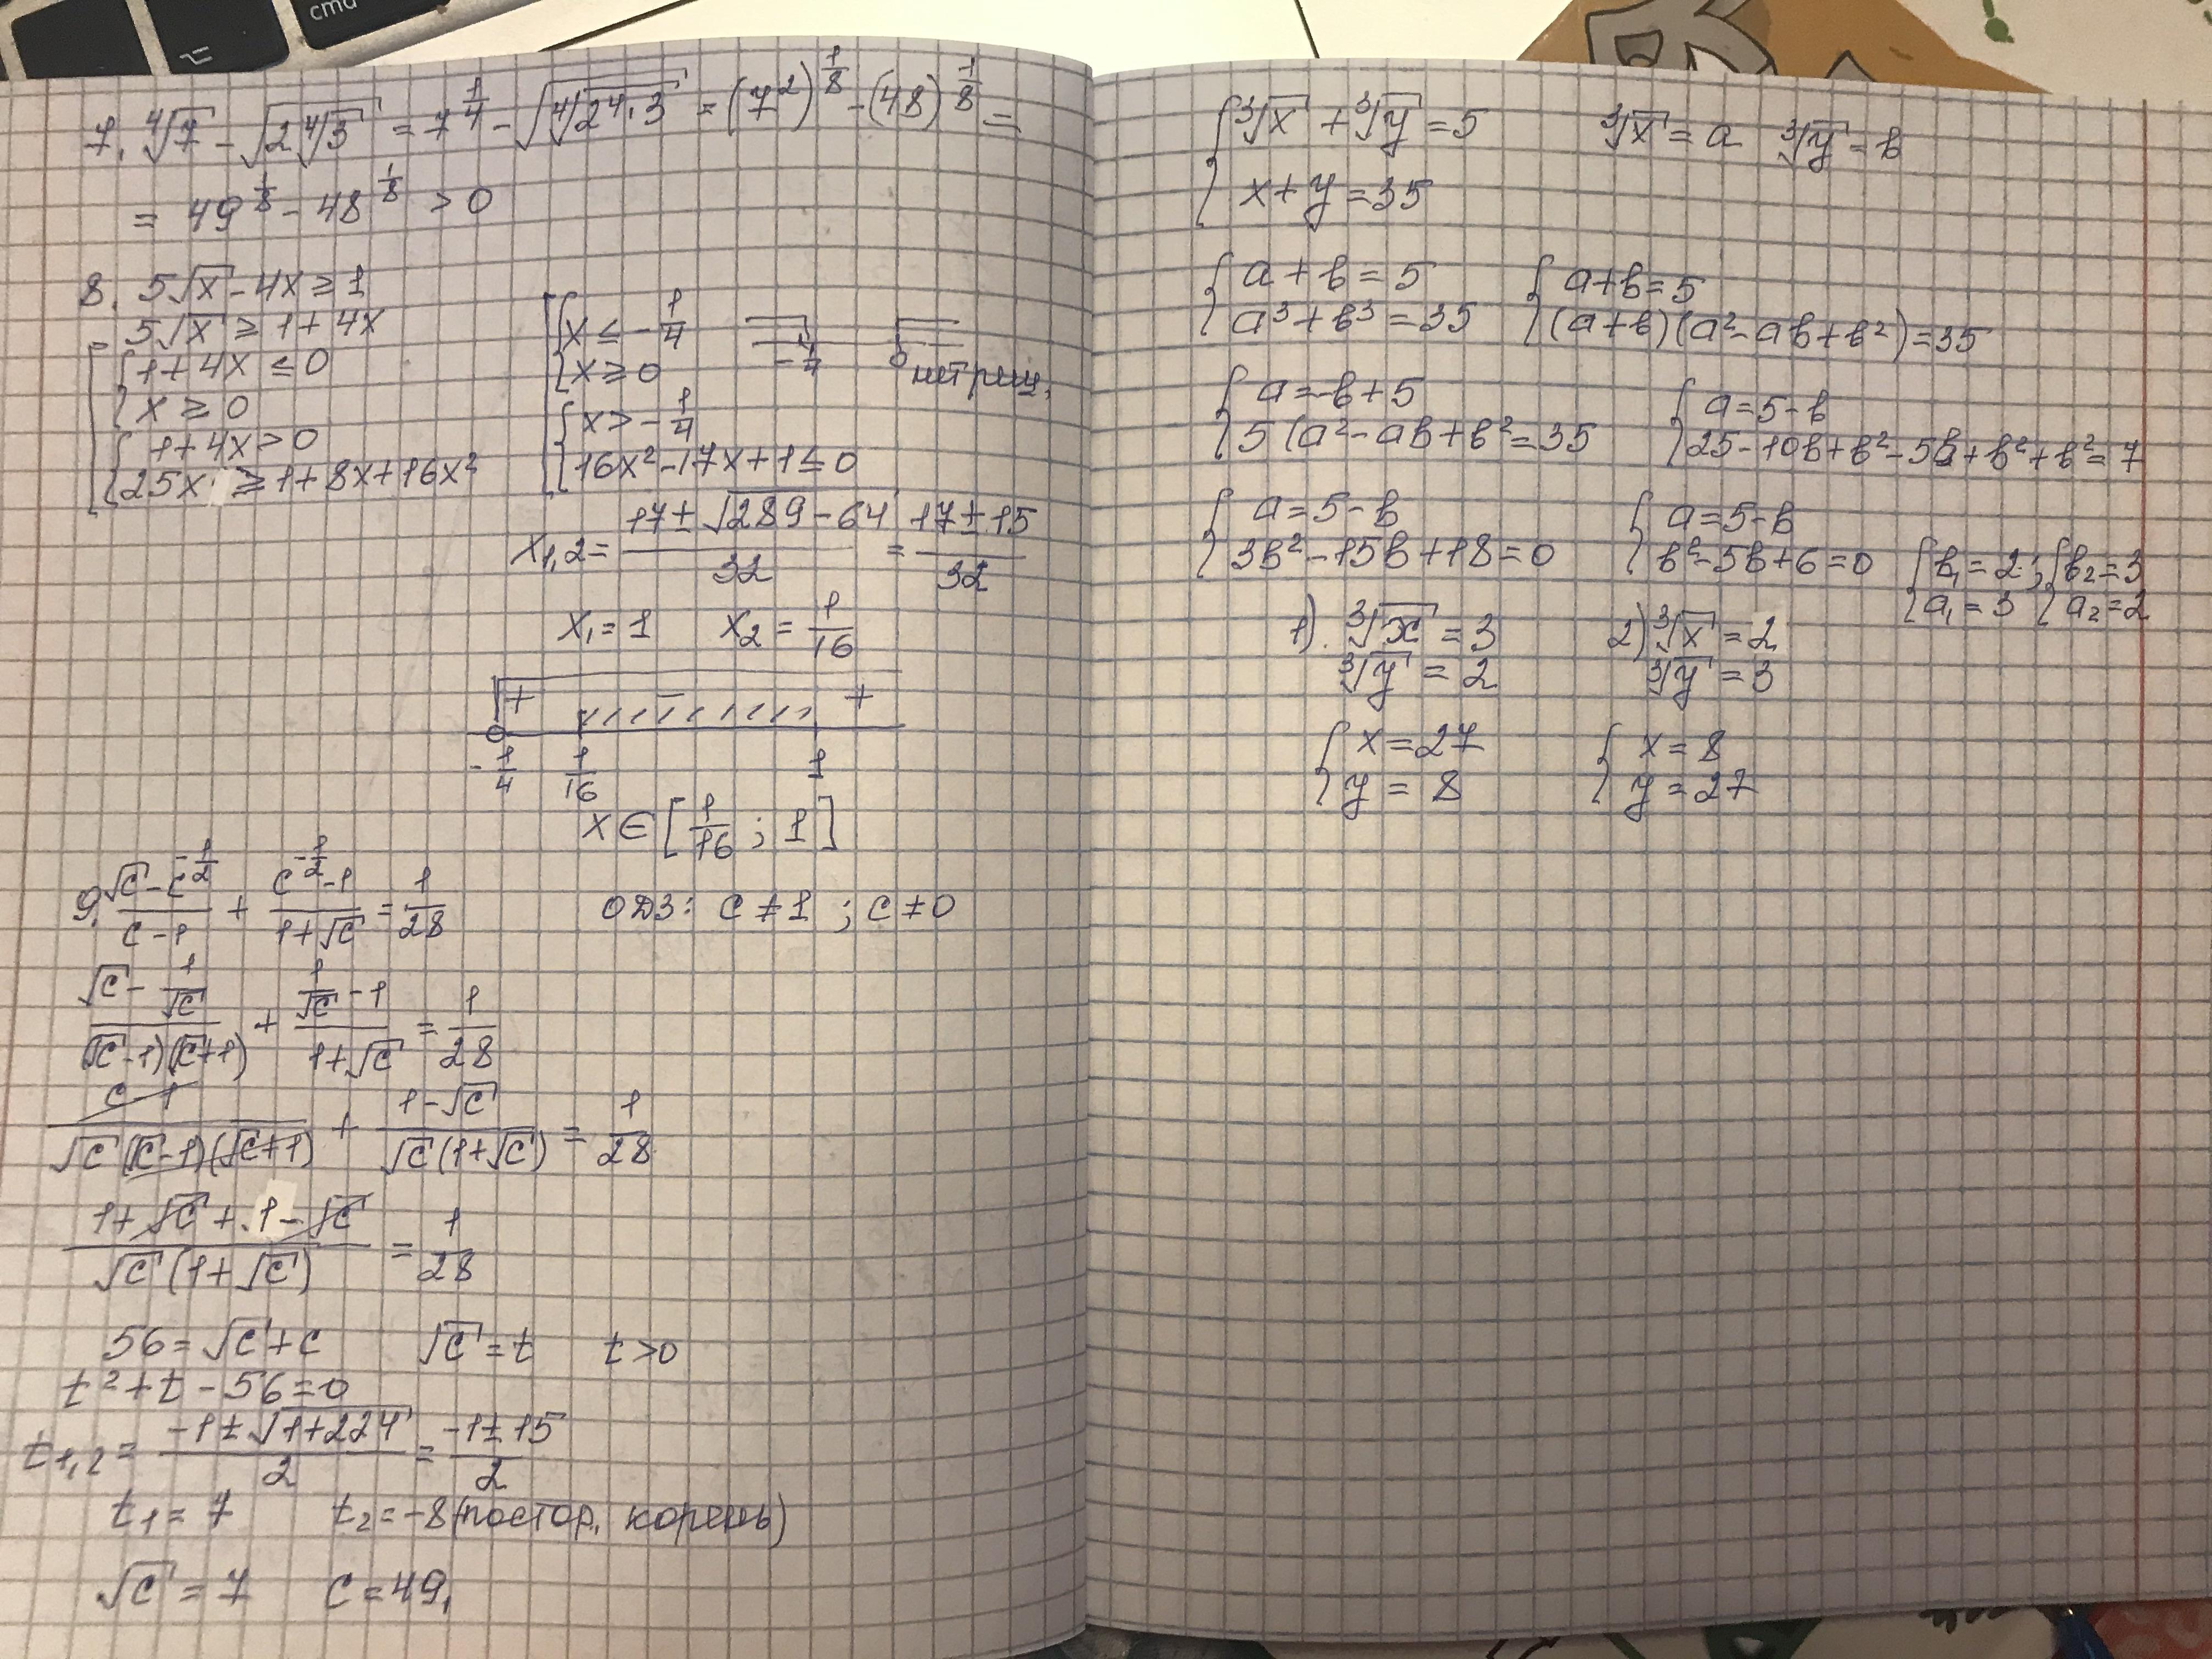 cmd
⌥
7. ∜7 - √(2∜3) = 7^(1/4) - √(∜(2⁴·3)) = (7²)^(1/8) - (48)^(1/8) =
= 49^(1/8) - 48^(1/8) > 0
8. 5√x - 4x ≥ 1
5√x ≥ 1 + 4x
[ { 1 + 4x ≤ 0
x ≥ 0
{ 1 + 4x > 0
25x ≥ 1 + 8x + 16x²
[ { x ≤ -1/4
x ≥ 0
-1/4 0 нет реш.
{ x > -1/4
16x² - 17x + 1 ≤ 0
x1,2 = (17 ± √(289 - 64))/32 = (17 ± 15)/32
x₁ = 1 x₂ = 1/16
+ - +
-1/4 1/16 1
x ∈ [1/16 ; 1]
9. (√c - c^(-1/2))/(c - 1) + (c^(-1/2) - 1)/(1 + √c) = 1/28 ОДЗ: c ≠ 1 ; c ≠ 0
(√c - 1/√c)/((√c - 1)(√c + 1)) + (1/√c - 1)/(1 + √c) = 1/28
(c - 1)/(√c(√c - 1)(√c + 1)) + (1 - √c)/(√c(1 + √c)) = 1/28
(1 + √c + 1 - √c)/(√c(1 + √c)) = 1/28
56 = √c + c √c = t t > 0
t² + t - 56 = 0
t1,2 = (-1 ± √(1 + 224))/2 = (-1 ± 15)/2
t₁ = 7 t₂ = -8 (постор. корень)
√c = 7 c = 49.
{ ∛x + ∛y = 5 ∛x = a ∛y = b
x + y = 35
{ a + b = 5 { a + b = 5
a³ + b³ = 35 (a + b)(a² - ab + b²) = 35
{ a = -b + 5 { a = 5 - b
5(a² - ab + b² = 35 25 - 10b + b² - 5b + b² + b² = 7
{ a = 5 - b { a = 5 - b
3b² - 15b + 18 = 0 b² - 5b + 6 = 0 { b₁ = 2 ; { b₂ = 3
a₁ = 3 a₂ = 2
1). ∛x = 3 2) ∛x = 2
∛y = 2 ∛y = 3
{ x = 27 { x = 8
y = 8 y = 27